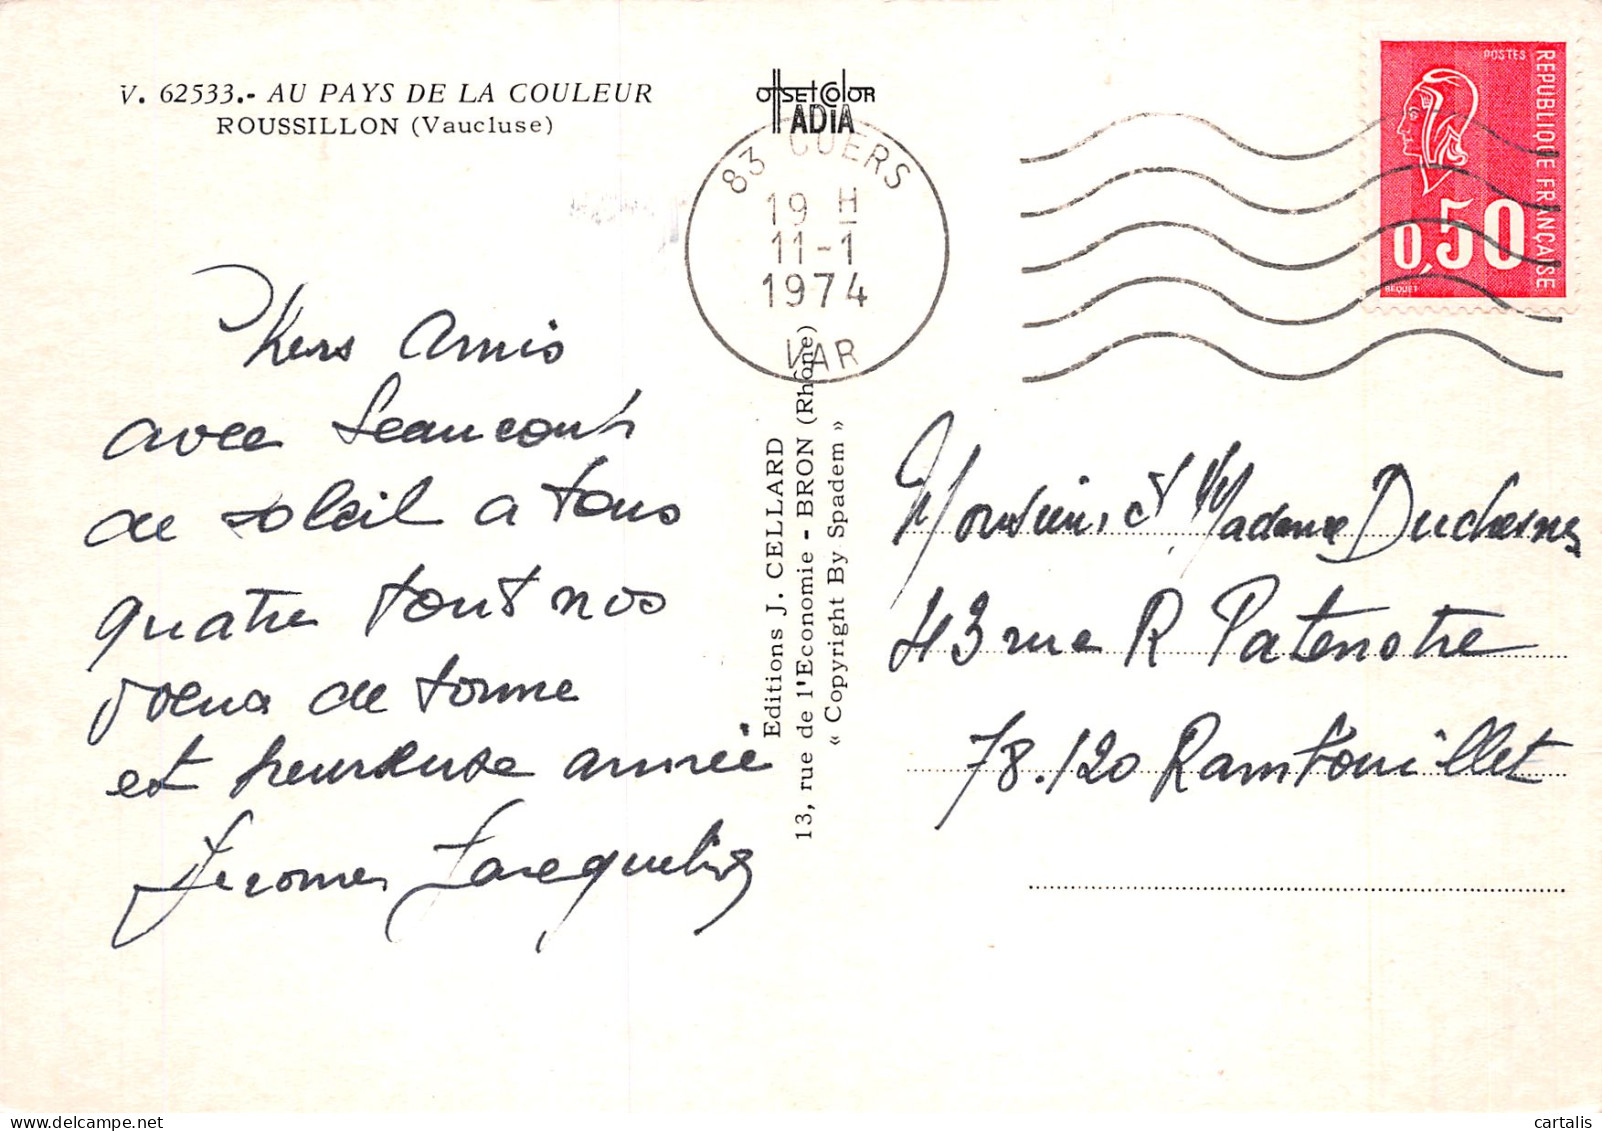 V. 62533.- AU PAYS DE LA COULEUR
ROUSSILLON (Vaucluse)
OffSEtColOR
ADiA
83 CUERS
19 H
11-1
1974
VAR
POSTES
REPUBLIQUE FRANÇAISE
0,50
BEQUET
Editions J. CELLARD
13, rue de l'Economie - BRON (Rhône)
« Copyright By Spadem »
amis
avec beaucoup
de soleil a tous
quatre tout nos
voeux de forme
et heureuse année
Jerome Jacqueline
Monsieur et Madame Duchesne
43 rue R Patenotre
78.120 Rambouillet
cartalis sur delcampe.net